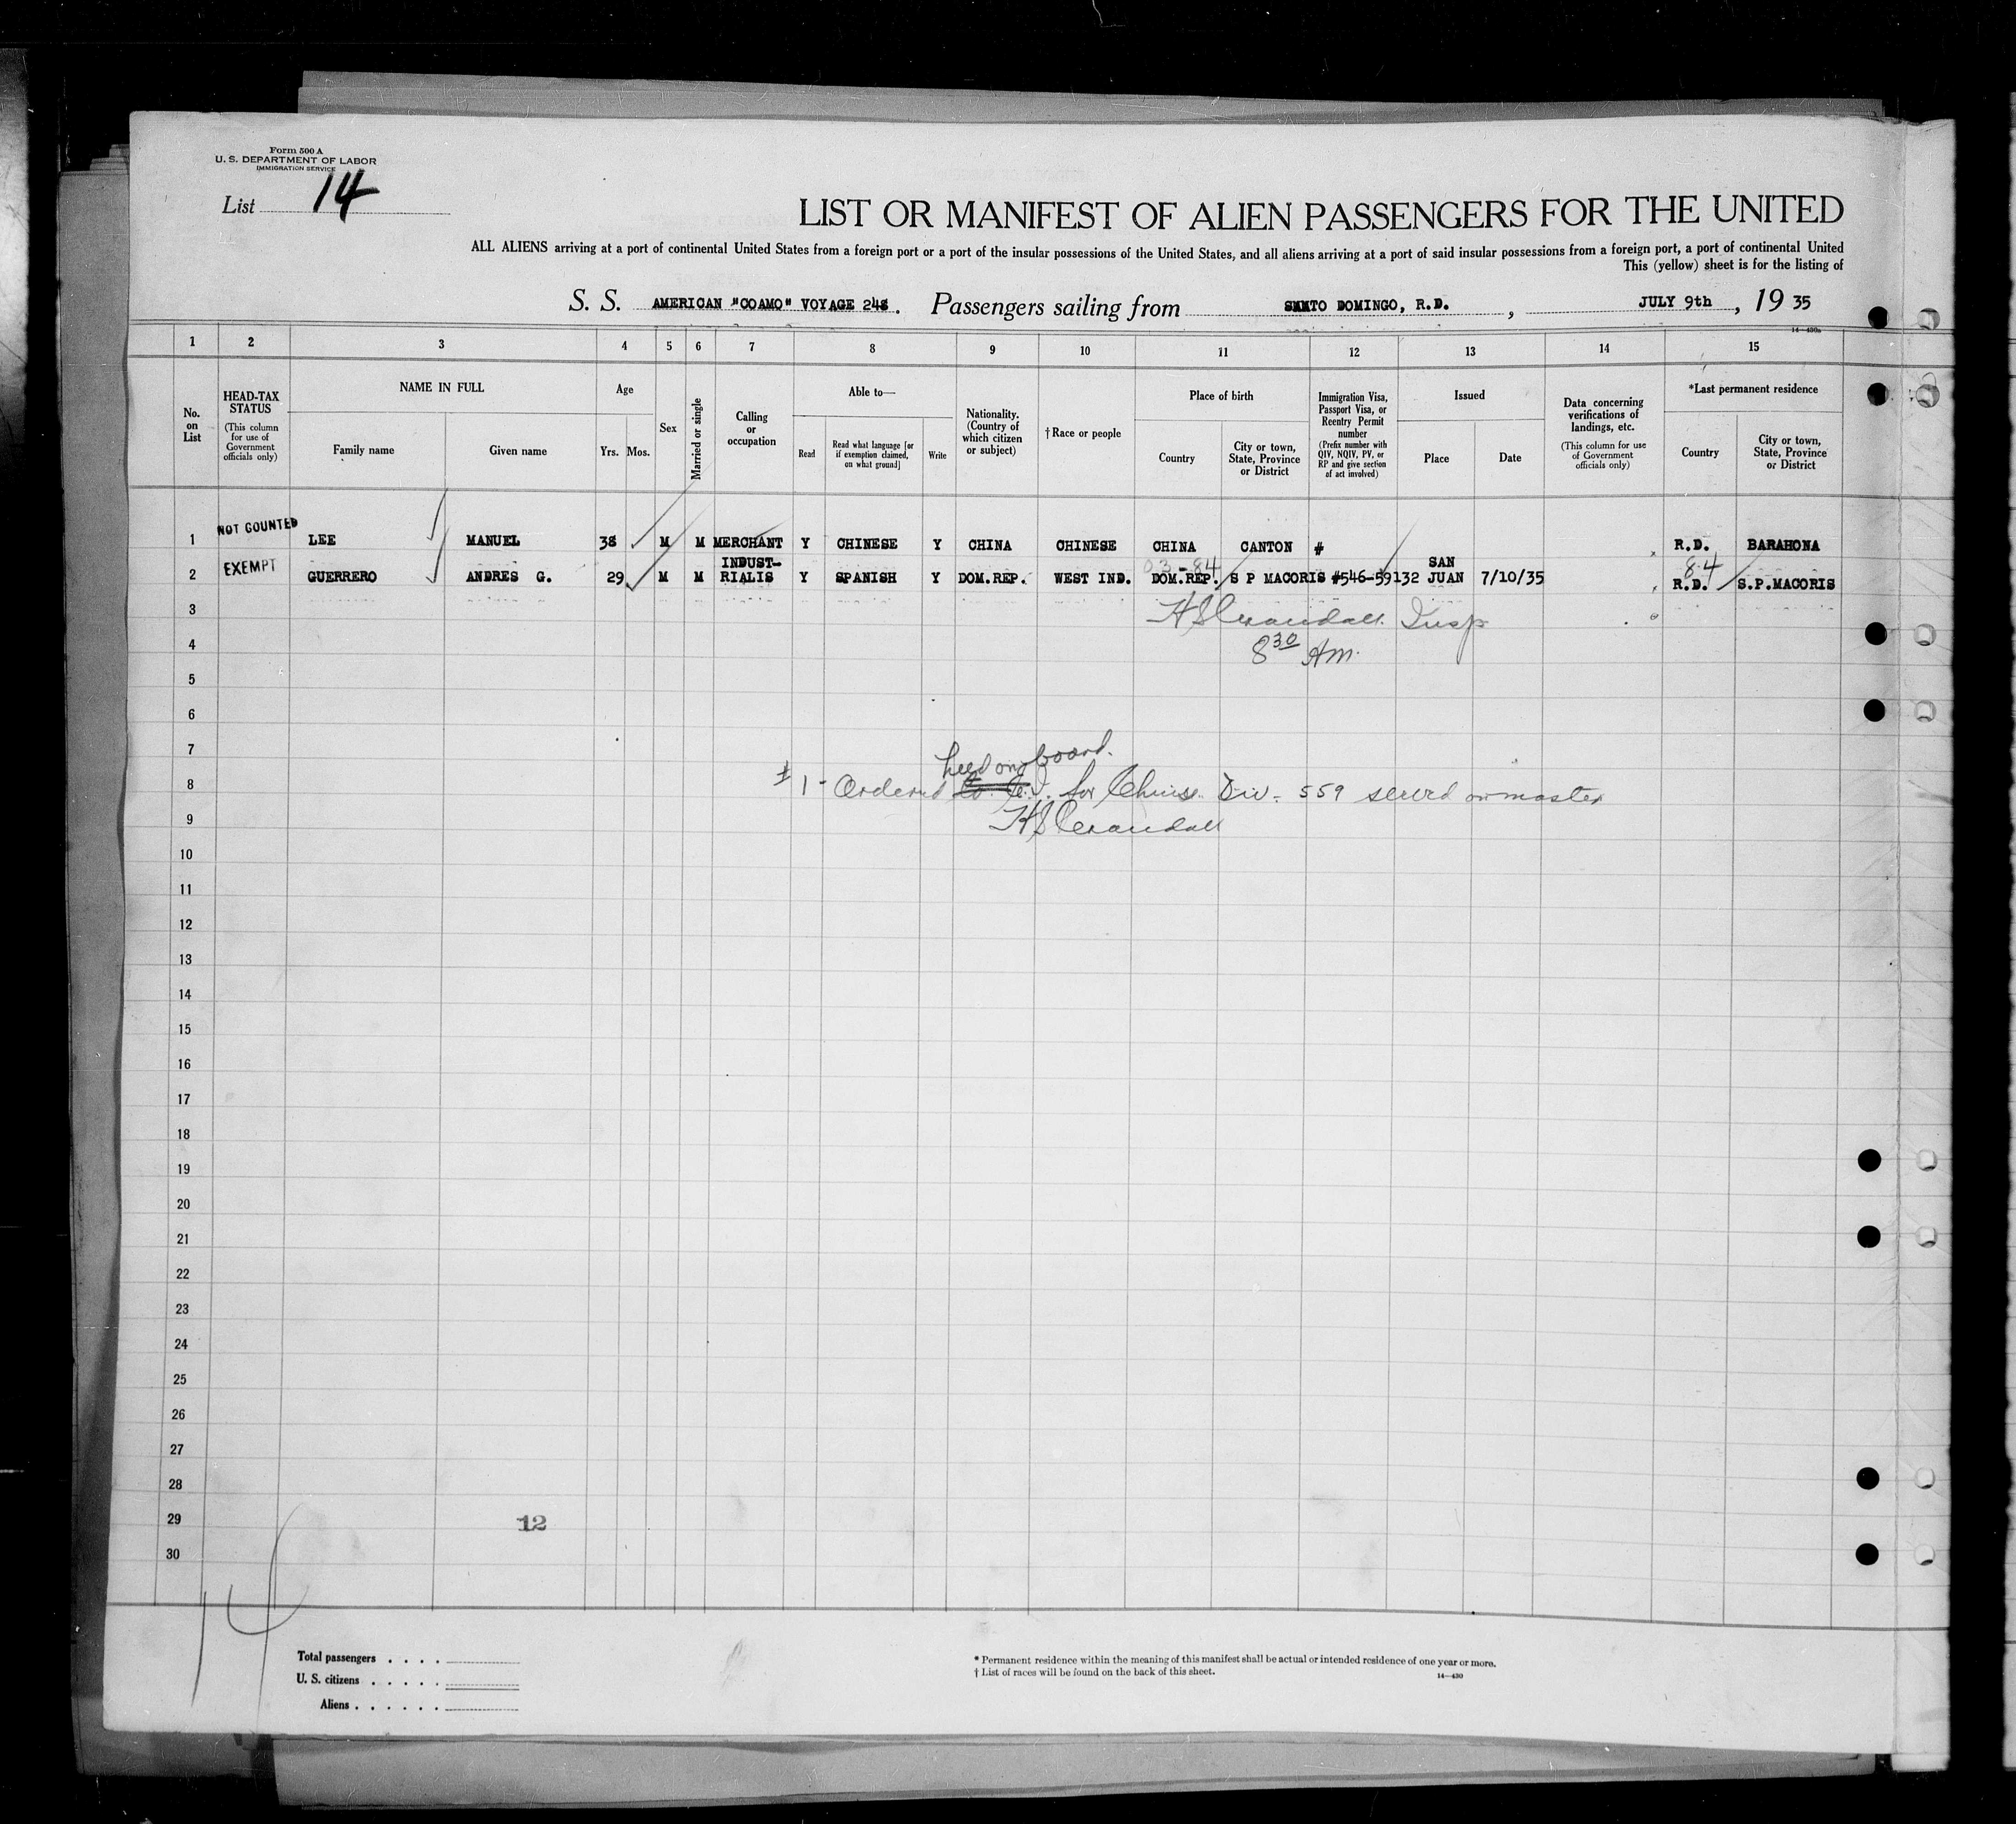 Form 500 A
U. S. DEPARTMENT OF LABOR
IMMIGRATION SERVICE
List 14
LIST OR MANIFEST OF ALIEN PASSENGERS FOR THE UNITED
ALL ALIENS arriving at a port of continental United States from a foreign port or a port of the insular possessions of the United States, and all aliens arriving at a port of said insular possessions from a foreign port, a port of continental United
This (yellow) sheet is for the listing of
S. S. AMERICAN "COAMO" VOYAGE 248. Passengers sailing from SANTO DOMINGO, R.D., JULY 9th, 19 35
14—430a
1 2 3 4 5 6 7 8 9 10 11 12 13 14 15
No. on List
HEAD-TAX STATUS (This column for use of Government officials only)
NAME IN FULL
Family name Given name
Age
Yrs. Mos.
Sex
Married or single
Calling or occupation
Able to—
Read
Read what language [or if exemption claimed, on what ground]
Write
Nationality. (Country of which citizen or subject)
†Race or people
Place of birth
Country
City or town, State, Province or District
Immigration Visa, Passport Visa, or Reentry Permit number (Prefix number with QIV, NQIV, PV, or RP and give section of act involved)
Issued
Place Date
Data concerning verifications of landings, etc. (This column for use of Government officials only)
*Last permanent residence
Country
City or town, State, Province or District
1 NOT COUNTED LEE MANUEL 38 M M MERCHANT Y CHINESE Y CHINA CHINESE CHINA CANTON # R.D. BARAHONA
03-84 84
2 EXEMPT GUERRERO ANDRES G. 29 M M INDUST-RIALIS Y SPANISH Y DOM.REP. WEST IND. DOM.REP. S P MACORIS #546-59132 SAN JUAN 7/10/35 R.D. S.P.MACORIS
3 H S Crandall Insp
4 8 30 AM.
5
6
7 held on board.
8 #1 - Ordered to S.I. for Chinese Div. 559 served on master
9 H S Crandall
10
11
12
13
14
15
16
17
18
19
20
21
22
23
24
25
26
27
28
29 12
30
14
Total passengers . . . .
U. S. citizens . . . . .
Aliens . . . . . .
* Permanent residence within the meaning of this manifest shall be actual or intended residence of one year or more.
† List of races will be found on the back of this sheet.
14—430